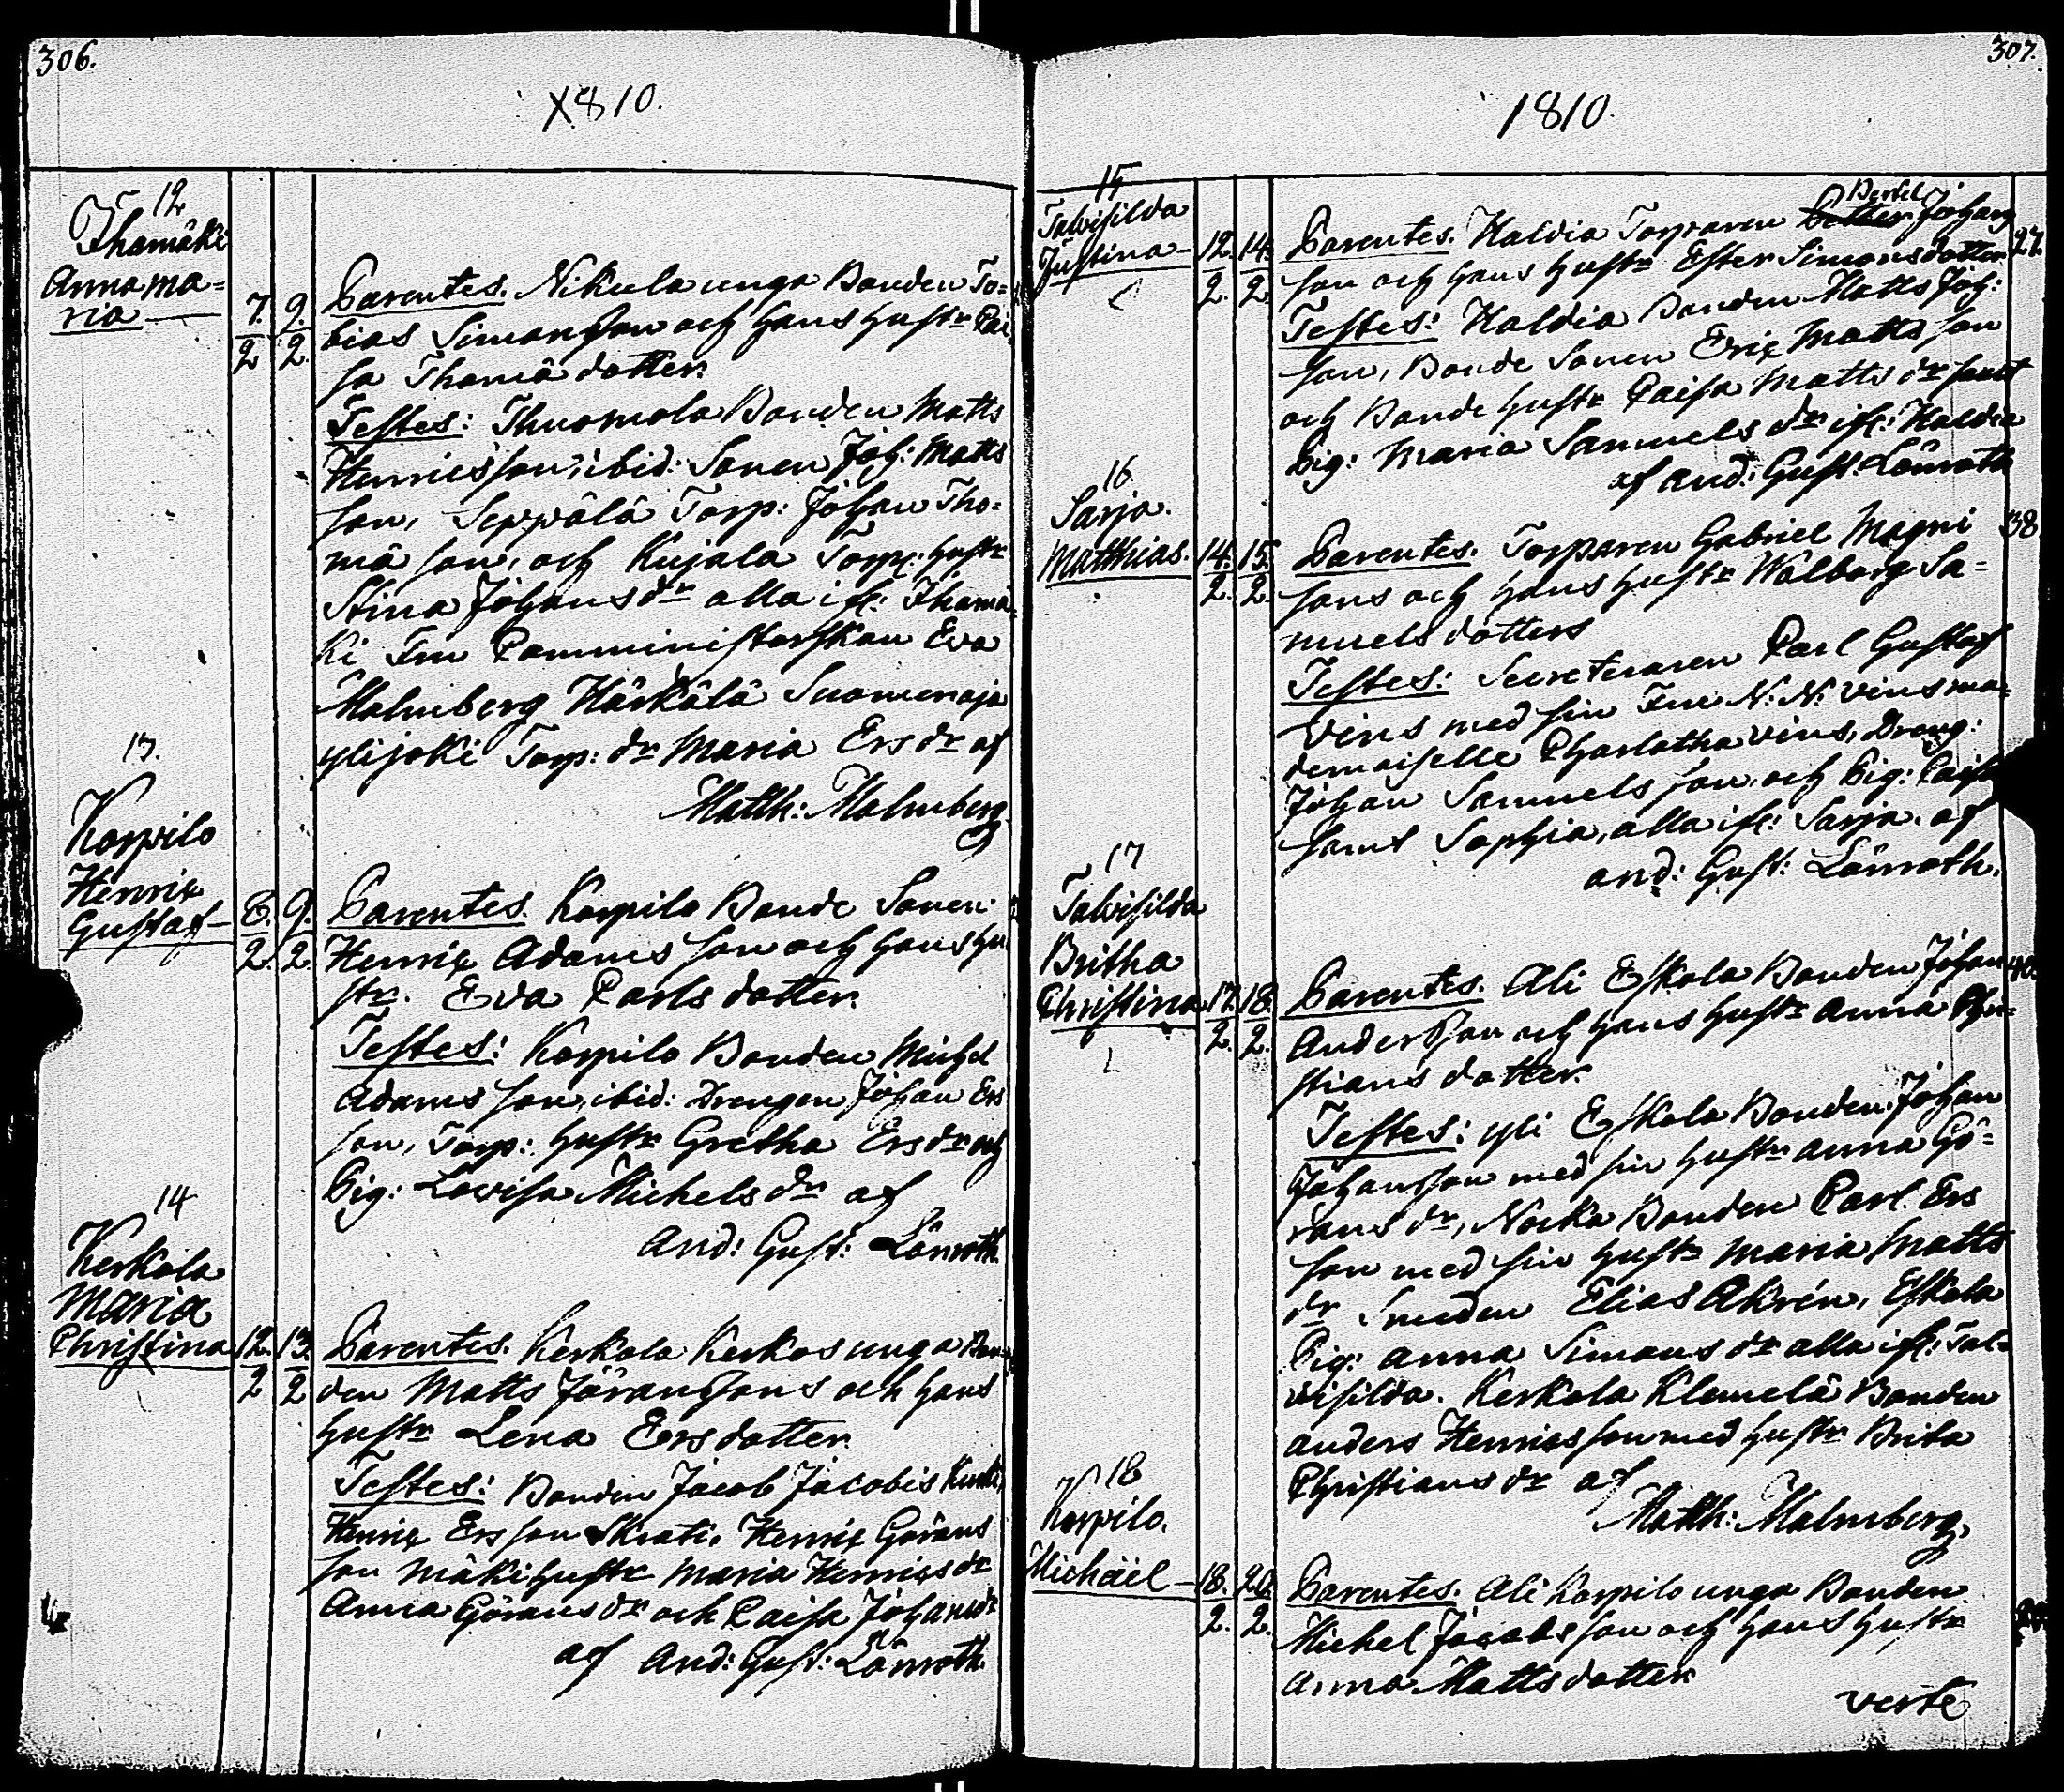 306.
1810.
12
Ihamäki
Anna Ma=
ria
7. 9.
2 2.
Parentes. Nikula unga Bonden To=
bias Simonsson och hans hustr Cai
sa Thomä dotter.
Testes: Thuomola Bonden Matts
Henricsson, ibid: Sonen Joh: Matts
son, Seppälä Torp: Johan Tho=
mä son, och Kujala Torp: hustr
Stina Johans dr alla ifr: Ihamä
ki Fru Comministerskan Eva
Malmberg Härkälä Suomenoja
ylijoki Torp: dr Maria Ers dr af
Matth: Malmberg.
13.
Korpilo
Henrix
Gustaf
8. 9.
2. 2.
Parentes. Korpilo Bonde Sonen
Henrix Adams son och hans hu
str. Eva Carls dotter.
Testes: Korpilo Bonden Michel
Adams son, ibid: Drengen Johan Ers
son, Torp: hustr Gretha Ers dr och
Pig: Lovisa Michels dr af
And: Gust: Lönroth
14
Kerkola
Maria
Christina
12. 13.
2 2
Parentes. Kerkola Kerkos unga Bon
den Matts Jöranssons och hans
hustr Lena Ers dotter.
Testes: Bonden Jacob Jacobis
Henrix Ers son Skrati, Henrix Görans
son Mäki hustr Maria Henrics dr
Anna Görans dr och Caisa Johans dr
af And: Gust: Lönroth
307.
1810.
15
Talvisilda
Justina
12. 14.
2. 2
Parentes. Haldia Torparen Bertel Johans
son och hans hustr Ester Simonsdotter
27.
Testes: Haldia Bonden Matts Joh:
son, Bonde Sonen Eric Matts son
och Bonde hustr Caisa Matts dr samt
Pig: Maria Samuels dr ifr: Haldia
af And: Gust: Lönroth
16
Sarja.
Matthias.
14. 15.
2. 2.
Parentes. Torparen Gabriel Magni
38
sons och hans hustr Wälborg Sa=
muels dotters
Testes: Secreteraren Carl Gustaf
Vins med sin Fru N: N: Vins ma=
demoiselle Charlotha Vins, Dreng:
Johan Samuels son, och Pig: Caisa
samt Sophia, alla ifr: Sarja. af
And: Gust: Lönroth.
17
Talvisilda
Britha
Christina
17. 18.
2. 2.
Parentes. Ali Eskola Bonden Johan
40.
Andersson och hans hustr Anna Chri=
stians dotter.
Testes: yli Eskola Bonden Johan
Johansson med sin hustr Anna Gö=
rans dr, Norka Bonden Carl Ers
son med sin hustr Maria Matts
dr Smeden Elias Akrén, Eskola
Pig: Anna Simons dr alla ifr: Tal=
visilda. Kerkola Klemelä Bonden
Anders Henricsson med hustr Brita
Christians dr af
Matth: Malmberg.
18
Korpilo.
Michäel
18. 20.
2. 2.
Parentes. Ali Korpilo unga Bonden
Michel Jacobs son och hans hustr
Anna Matts dotter
verte